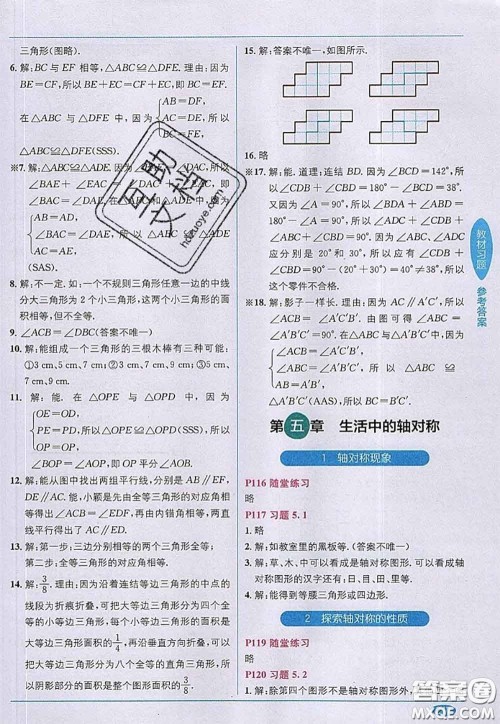 三角形(图略).
6. 解:BC与EF相等,△ABC≌△DFE. 理由:因为
BE=CF,所以BE+EC=CF+EC,即BC=FE.
在△ABC与△DFE中,因为
AB=DF,
AC=DE,
BC=FE,
所以△ABC≌△DFE(SSS).
※7. 解:△ABC≌△ADE.
所以
∠BAE=
∠DAE. 在
△ABC和△ADE
∠C=∠E,
AC=AE,
所以△ABC≌△ADE
(SAS).
8. 解:不一定. 如一个不规则三角形任意一边的中线
分大三角形为2个小三角形,这两个小三角形的面
积相等,但不全等.
9. ∠ACB=∠DBC(答案不唯一)
10. 解:能组成一个三角形的三根木棒有三种可能:
①3 cm,5 cm,7 cm;②3 cm,7 cm,9 cm;③5 cm,
7 cm,9 cm.
11. 解:在△OPE与△OPD中,因为
OE=OD,
PE=PD,
OP=OP,
所以△OPE≌△OPD(SSS). 所以
∠BOP=∠AOP,即OP平分∠AOB.
12. 解:能从图中找出两组平行线,分别为AB∥DF,
AC∥DE. 能,小颖是先由全等三角形的对应角相
等得出了AB∥DF,再由内错角相等,两直线平
行得出了AC∥ED.
13. 解:第一步:三边分别相等的两个三角形全等;
第二步:全等三角形的对应角相等.
14. 解:3/8. 理由:因为沿着连结等边三角形的中点的
线段为折痕折叠,可以把大等边三角形分为四个全
等的小等边三角形,每个小等边三角形的面积是
大等边三角形面积的1/4,再沿垂直方向对折,可以
把每个小等边三角形分为两个全等三角形,所以
以阴影部分的面积是整个大三角形面积的3/8.
15. 解:答案不唯一,如图所示.
16. 略
※17. 解:能.道理:连结BD. 因为∠BCD=142°,所
以∠CDB+∠CBD=180°-∠BCD=38°.
又因为∠A=90°,所以∠ADB+∠ABD=
180°-∠A=90°. 因为∠ADC和∠ABC本来
应分别是20°和30°,所以应有∠CDB+
∠CBD=90°-(20°+30°)=40°≠38°,所以
这个零件不合格.
※18. 解:影子一样长. 理由:因为AC∥A′C′,所以
∠ACB=∠A′C′B′. 因为∠ABC=90°,
∠A′B′C′=90°,所以∠ABC=∠A′B′C′. 又因
为AB=A′B′,所以△ABC≌
△A′B′C′(AAS),所以BC=B′C′.
教材习题
参考答案
第五章 生活中的轴对称
1 轴对称现象
P116 随堂练习
略
P117 习题 5. 1
1. 略
2. 解:如教室里的黑板等.(答案不唯一)
3. 解:草、木、中可以看成是轴对称图形. 可以看成轴
对称图形的汉字还有:日、目、田等.
4. 解:能得到等腰三角形或四边形.
2 探索轴对称的性质
P119 随堂练习
略
P120 习题 5. 2
1. 解:除第四个图形不是轴对称图形外,
互助文档
hdzuoye.com
答案圈
MXQE.COM